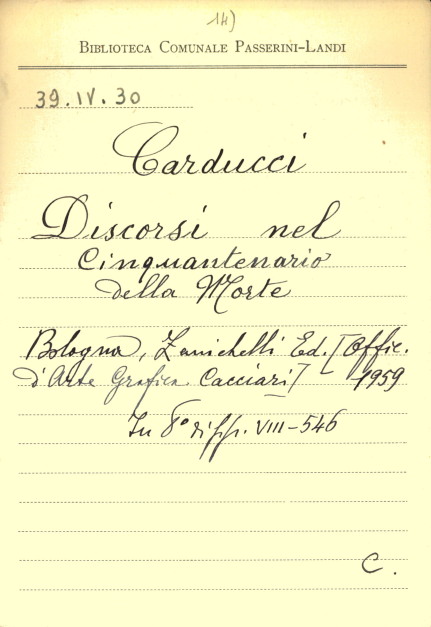 14)
BIBLIOTECA COMUNALE PASSERINI-LANDI
39.IV.30
Carducci
Discorsi nel
Cinquantenario
della Morte
Bologna, Zanichelli Ed. [Offic.
d'Arte Grafica Cacciari] 1959
In 8° di pp. VIII-546
C.